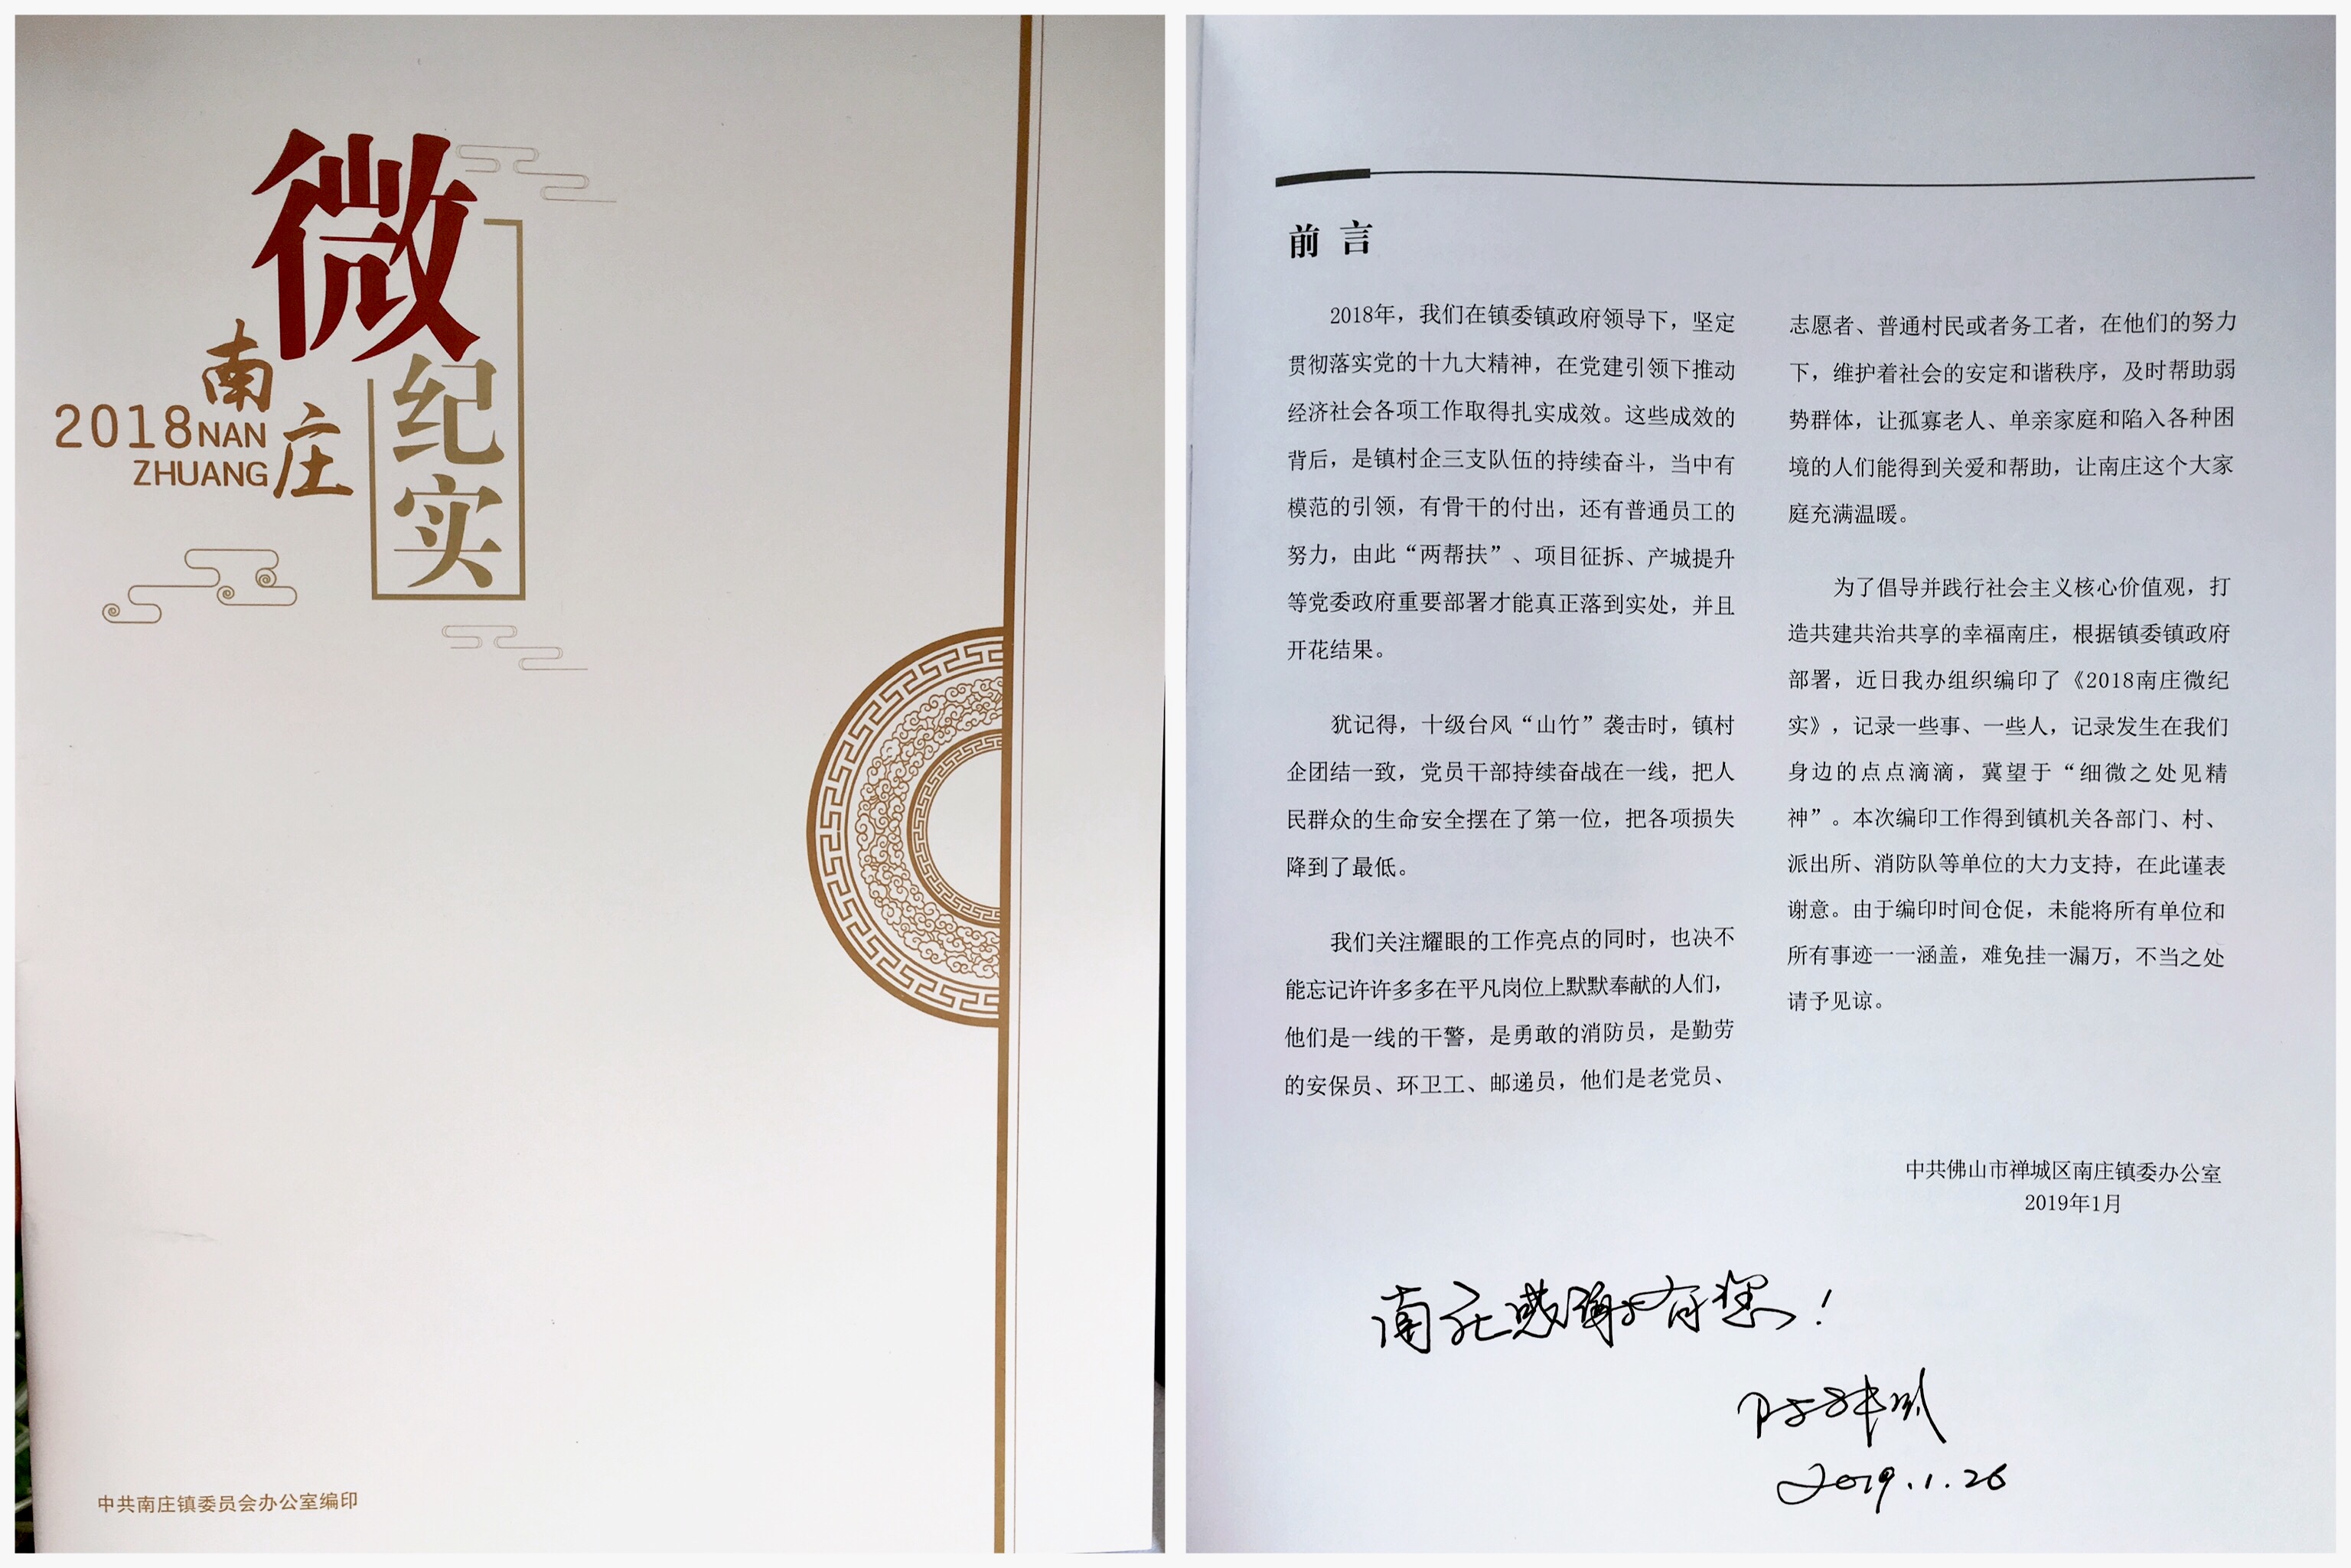 微
纪
实
南
庄
2018NAN
ZHUANG
中共南庄镇委员会办公室编印
前言
2018年，我们在镇委镇政府领导下，坚定
贯彻落实党的十九大精神，在党建引领下推动
经济社会各项工作取得扎实成效。这些成效的
背后，是镇村企三支队伍的持续奋斗，当中有
模范的引领，有骨干的付出，还有普通员工的
努力，由此“两帮扶”、项目征拆、产城提升
等党委政府重要部署才能真正落到实处，并且
开花结果。
犹记得，十级台风“山竹”袭击时，镇村
企团结一致，党员干部持续奋战在一线，把人
民群众的生命安全摆在了第一位，把各项损失
降到了最低。
我们关注耀眼的工作亮点的同时，也决不
能忘记许许多多在平凡岗位上默默奉献的人们，
他们是一线的干警，是勇敢的消防员，是勤劳
的安保员、环卫工、邮递员，他们是老党员、
志愿者、普通村民或者务工者，在他们的努力
下，维护着社会的安定和谐秩序，及时帮助弱
势群体，让孤寡老人、单亲家庭和陷入各种困
境的人们能得到关爱和帮助，让南庄这个大家
庭充满温暖。
为了倡导并践行社会主义核心价值观，打
造共建共治共享的幸福南庄，根据镇委镇政府
部署，近日我办组织编印了《2018南庄微纪
实》，记录一些事、一些人，记录发生在我们
身边的点点滴滴，冀望于“细微之处见精
神”。本次编印工作得到镇机关各部门、村、
派出所、消防队等单位的大力支持，在此谨表
谢意。由于编印时间仓促，未能将所有单位和
所有事迹一一涵盖，难免挂一漏万，不当之处
请予见谅。
中共佛山市禅城区南庄镇委办公室
2019年1月
南庄感谢有您！
2019.1.26